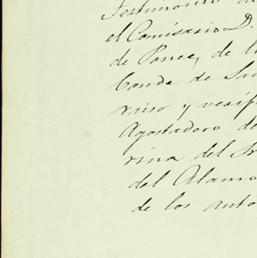 Testimonio de
el Comisario D.
de Ponce, de l
Conde de San
raiso y verif
Agostadero de
rina del Sr
del Alamo
de los auto